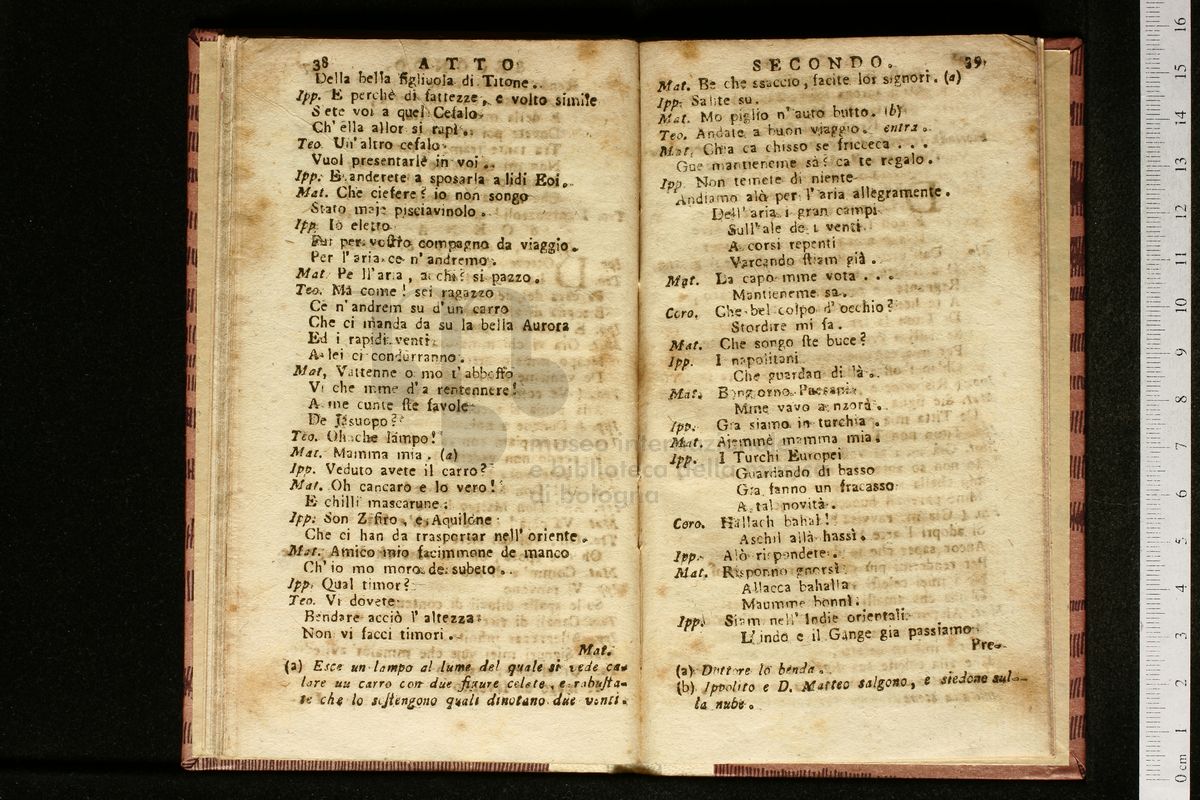 38 ATTO
Della bella figliuola di Titone.
Ipp. E perchè di fattezze, e volto simile
Sete voi a quel Cefalo
Ch'ella allor si rapì.
Teo. Un'altro cefalo
Vuol presentarle in voi.
Ipp. E anderete a sposarla a lidi Eoi.
Mat. Che ciefere? io non songo
Stato maje pisciavinolo.
Ipp. Io eletto
Fui per vostro compagno da viaggio.
Per l'aria ce n'andremo.
Mat. Pe ll'aria, a chi? si pazzo.
Teo. Ma come! sei ragazzo
Ce n'andrem su d'un carro
Che ci manda da su la bella Aurora
Ed i rapidi venti
A lei ci condurranno.
Mat. Vattenne o mo t'abboffo
Vi che mme d'a rentennere!
A me cunte ste favole
De Jasuopo?
Teo. Oh che lampo!
Mat. Mamma mia. (a)
Ipp. Veduto avete il carro?
Mat. Oh cancaro e lo vero!
E chilli mascarune?
Ipp. Son Zefiro, e Aquilone
Che ci han da trasportar nell'oriente.
Mat. Amico mio facimmone de manco
Ch'io mo moro de subeto.
Ipp. Qual timor?
Teo. Vi dovete
Bendare acciò l'altezza
Non vi facci timori.
Mat.
(a) Esce un lampo al lume del quale si vede ca-
lare un carro con due figure celete, e robusta-
te che lo sostengono quali dinotano due venti.
SECONDO. 39
Mat. Be che ssaccio, facite lor signori. (a)
Ipp. Salite su.
Mat. Mo piglio n'auto butto. (b)
Teo. Andate a buon viaggio. entra.
Mat. Chia ca chisso se fricceca . . .
Gue mantieneme sà? ca te regalo.
Ipp. Non temete di niente
Andiamo alò per l'aria allegramente.
Dell'aria i gran campi
Sull'ale de i venti
A corsi repenti
Varcando stiam già.
Mat. La capo mme vota . . .
Mantieneme sa.
Coro. Che bel colpo d'occhio?
Stordire mi fa.
Mat. Che songo ste buce?
Ipp. I napolitani
Che guardan di là.
Mat. Bongiorno Paesani
Mme vavo a nzorà.
Ipp. Gia siamo in turchia.
Mat. Ajemmè mamma mia.
Ipp. I Turchi Europei
Guardando di basso
Gia fanno un fracasso
A tal novità.
Coro. Hallach bahal!
Aschil allà hassi.
Ipp. Alò rispondete.
Mat. Risponno gnorsì
Allacca bahalla
Maumme bonnì.
Ipp. Siam nell'Indie orientali
L'indo e il Gange gia passiamo
Pre-
(a) Dottore lo benda.
(b) Ippolito e D. Matteo salgono, e siedono sul-
la nube.
museo internazionale
e biblioteca della
di bologna